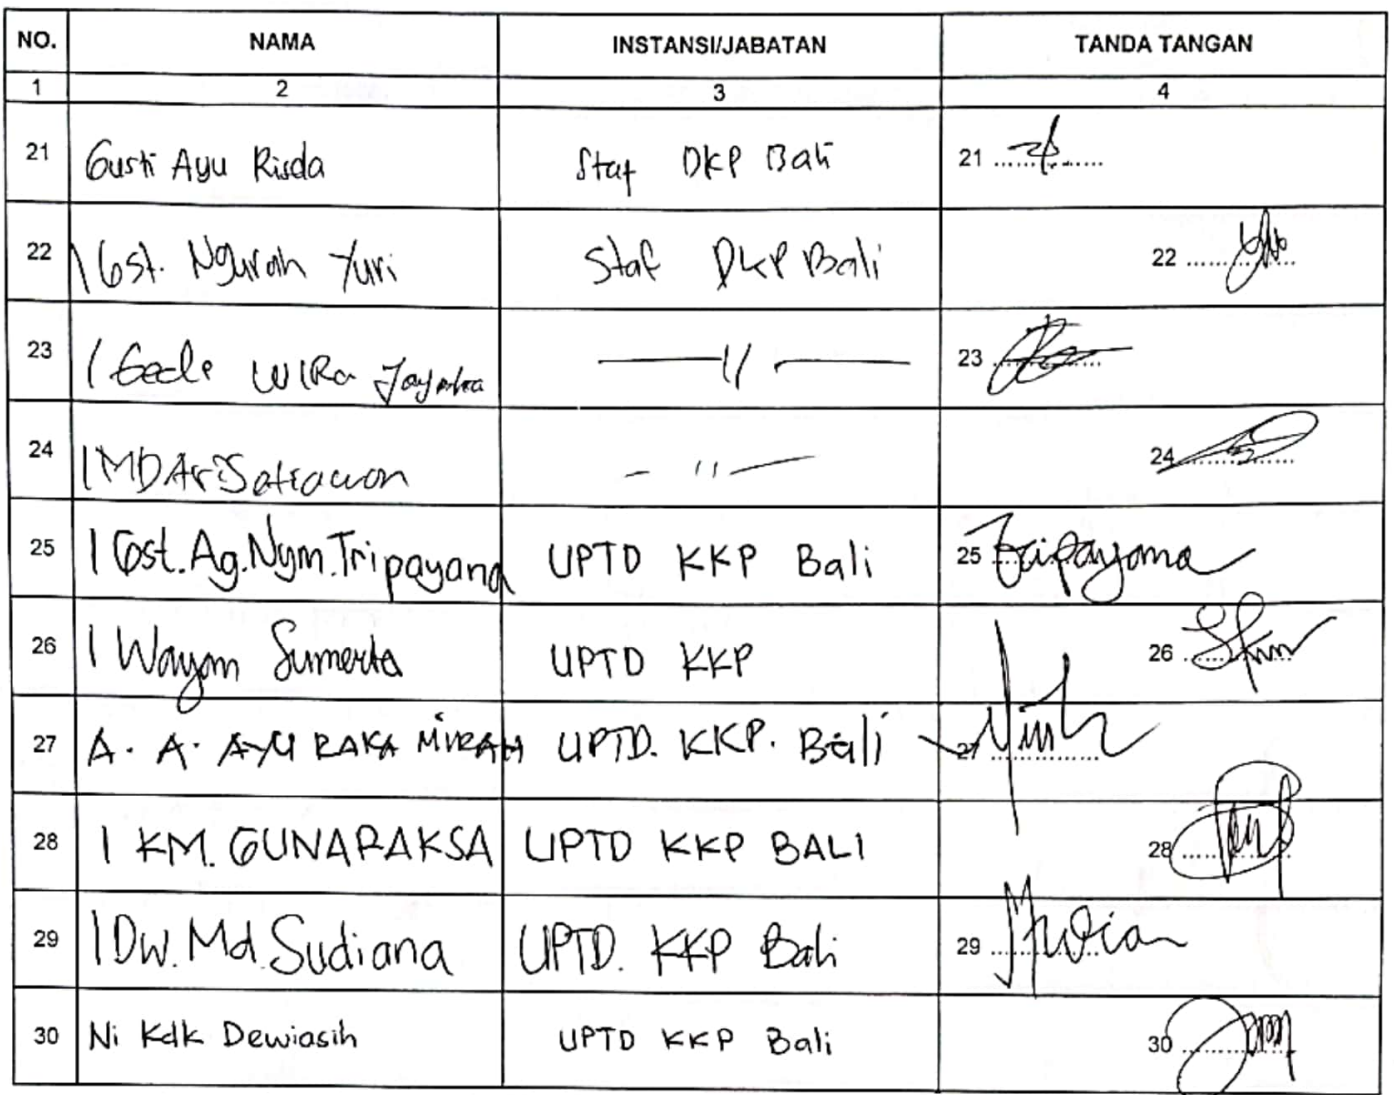 NO. NAMA INSTANSI/JABATAN TANDA TANGAN
1 2 3 4
21 Gusti Ayu Risda Staf DKP Bali 21
22 I Gst. Ngurah Yuri Staf DKP Bali 22
23 I Gede WIRa 〃 23
24 I MD Ari Setiawan 〃 24
25 I Gst. Ag. Nym. Tripayana UPTD KKP Bali 25 Tripayana
26 I Wayan Sumerta UPTD KKP 26
27 A. A. AYU RAKA MIRAH UPTD. KKP. Bali 27
28 I KM. GUNARAKSA UPTD KKP BALI 28
29 I Dw. Md. Sudiana UPTD. KKP Bali 29
30 Ni Kdk Dewiasih UPTD KKP Bali 30